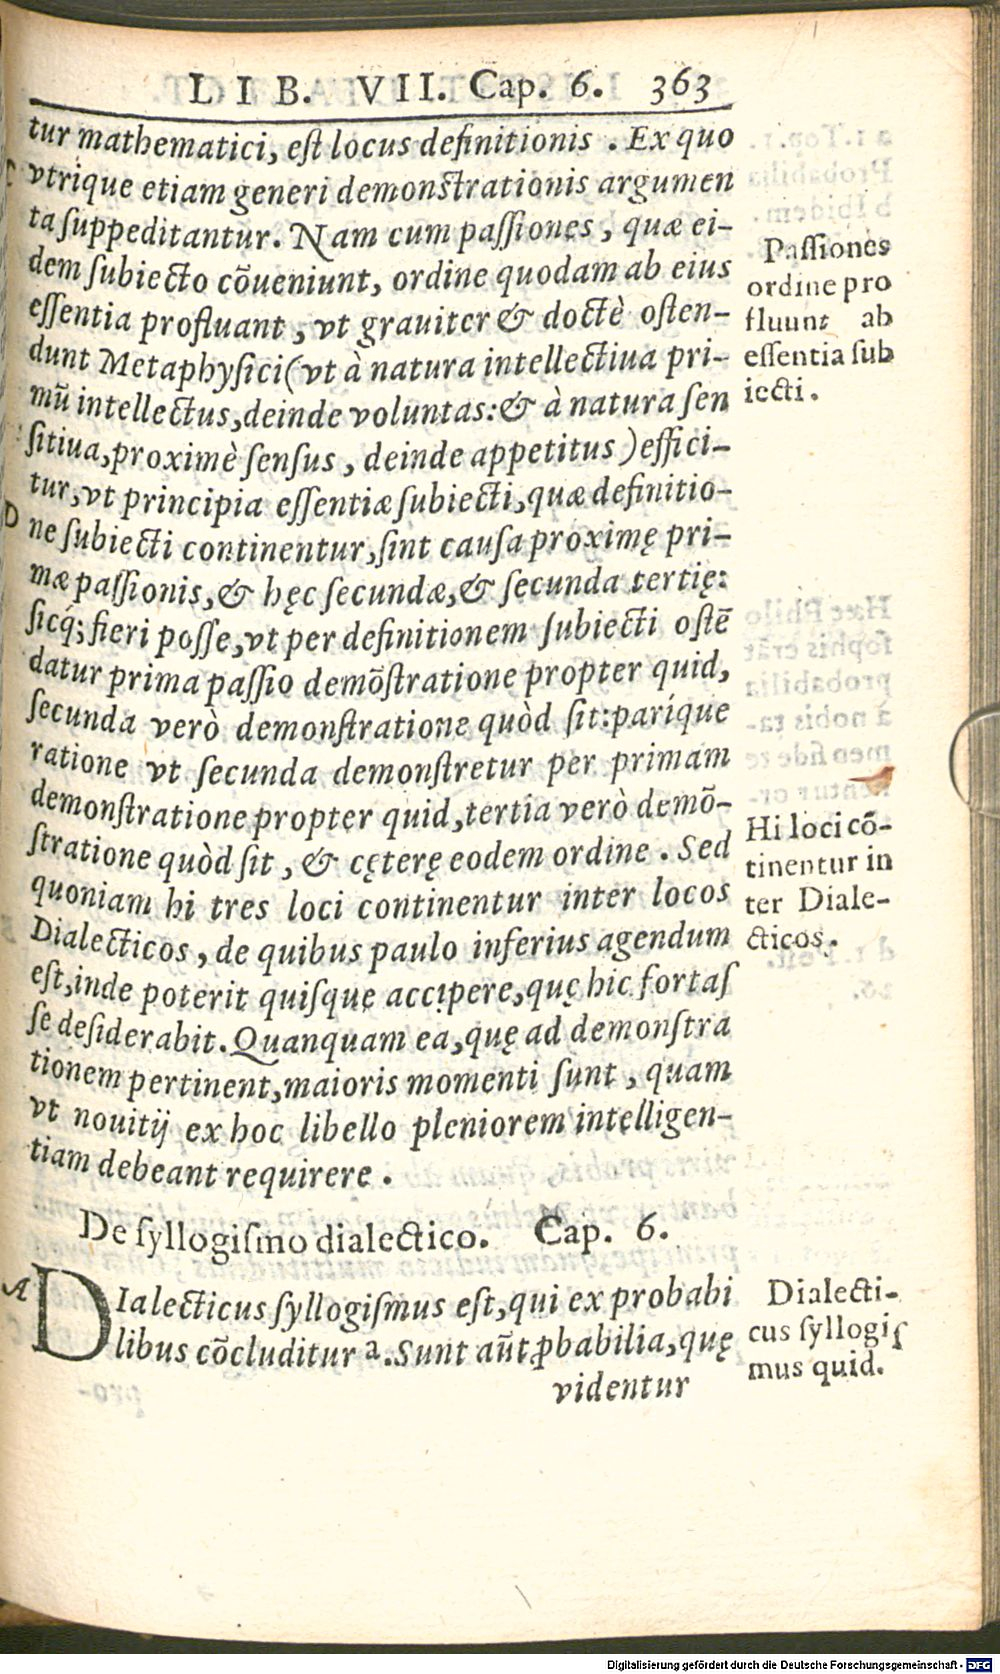 LIB. VII. Cap. 6. 363
tur mathematici, eſt locus definitionis . Ex quo
vtrique etiam generi demonſtrationis argumen
ta ſuppeditantur. Nam cum paſſiones, quæ ei-
dem ſubiecto cõueniunt, ordine quodam ab eius
eſſentia profluant, vt grauiter & doctè oſten-
dunt Metaphyſici (vt à natura intellectiua pri-
mũ intellectus, deinde voluntas: & à natura ſen
ſitiua, proximè ſenſus, deinde appetitus) effici-
tur, vt principia eſſentiæ ſubiecti, quæ definitio-
ne ſubiecti continentur, ſint cauſa proximę pri-
mæ paſſionis, & hęc ſecundæ, & ſecunda tertię:
ſicq́; fieri poſſe, vt per definitionem ſubiecti oſtẽ
datur prima paſſio demõſtratione propter quid,
ſecunda verò demonſtratione quòd ſit: paríque
ratione vt ſecunda demonſtretur per primam
demonſtratione propter quid, tertia verò demõ-
ſtratione quòd ſit, & cęterę eodem ordine. Sed
quoniam hi tres loci continentur inter locos
Dialecticos, de quibus paulo inferius agendum
eſt, inde poterit quiſque accipere, quę hic fortaſ
ſe deſiderabit. Quanquam ea, quę ad demonſtra
tionem pertinent, maioris momenti ſunt, quam
vt nouitij ex hoc libello pleniorem intelligen-
tiam debeant requirere.
Paſſiones
ordine pro
fluunt ab
eſſentia ſub
iecti.
Hi loci cõ-
tinentur in
ter Diale-
cticos.
D
De ſyllogiſmo dialectico. Cap. 6.
A
DIalecticus ſyllogiſmus eſt, qui ex probabi
libus cõcluditur a. Sunt aũt ꝓbabilia, quę
videntur
Dialecti-
cus ſyllogiſ
mus quid.
Digitalisierung gefördert durch die Deutsche Forschungsgemeinschaft - DFG